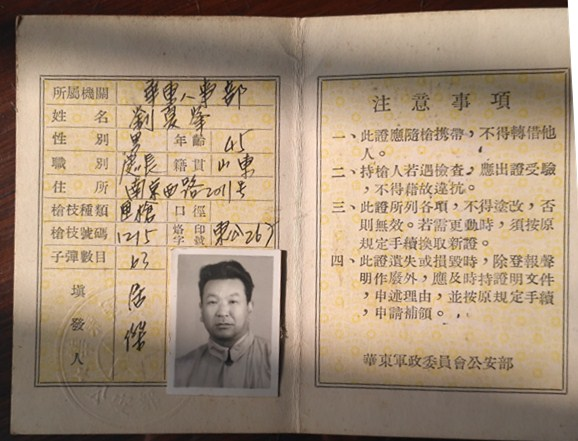 所屬機關 華東人事部
姓名 劉夏峯
性別 男 年齡 45
職別 處長 籍貫 山東
住所 南京西路2011号
槍枝種類 甲槍 口徑
槍枝號碼 1215 烙印字號 東公267
子彈數目 63
填發人 傑
注意事項
一、此證應隨槍携帶，不得轉借他
人。
二、持槍人若遇檢查，應出證受驗
，不得藉故違抗。
三、此證所列各項，不得塗改，否
則無效。若需更動時，須按原
規定手續換取新證。
四、此證遺失或損毀時，除登報聲
明作廢外，應及時持證明文件
，申述理由，並按原規定手續
，申請補領。
華東軍政委員會公安部